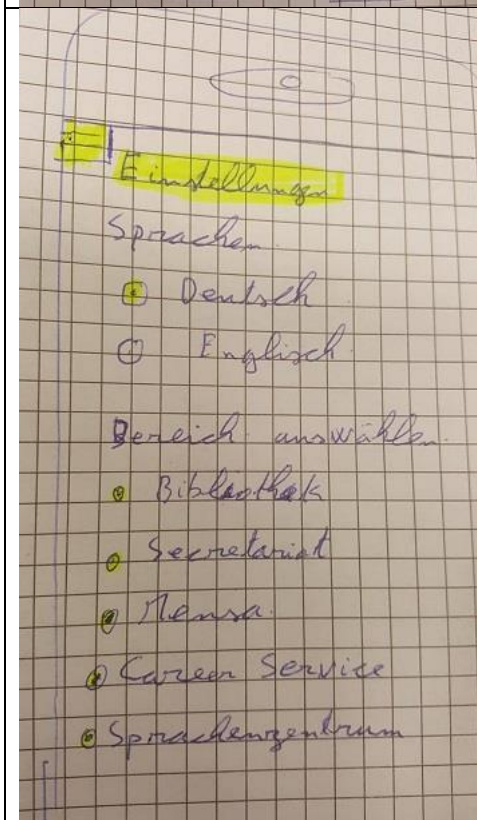 Einstellungen
Sprachen
Deutsch
Englisch
Bereich auswählen
Bibliothek
Secretariat
Mensa
Career Service
Sprachenzentrum